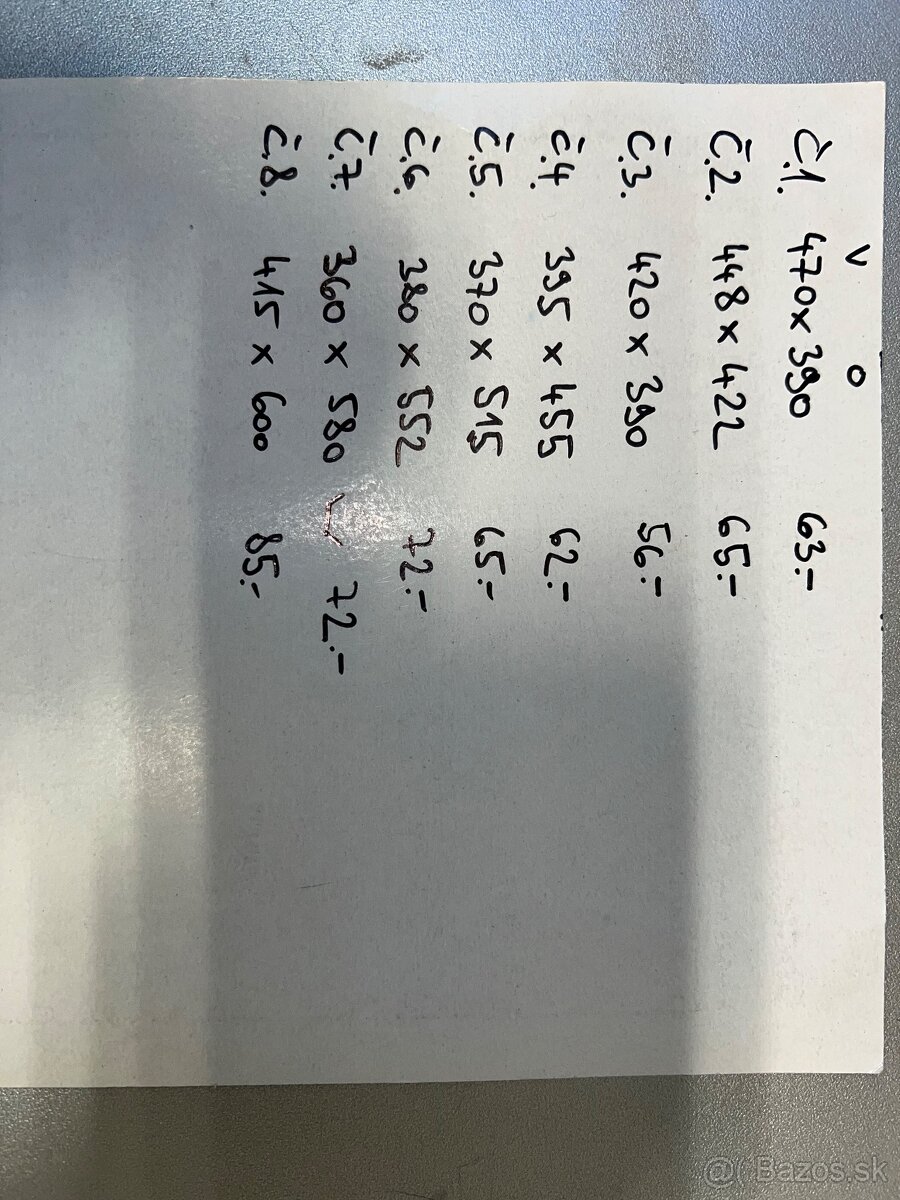 V O
č.1. 470x390 63.-
č.2. 448 x 422 65.-
č.3. 420 x 390 56.-
č.4. 395 x 455 62.-
č.5. 370 x 515 65.-
č.6. 380 x 552 72.-
č.7. 360 x 580 72.-
č.8. 415 x 600 85.-
@( Bazos.sk